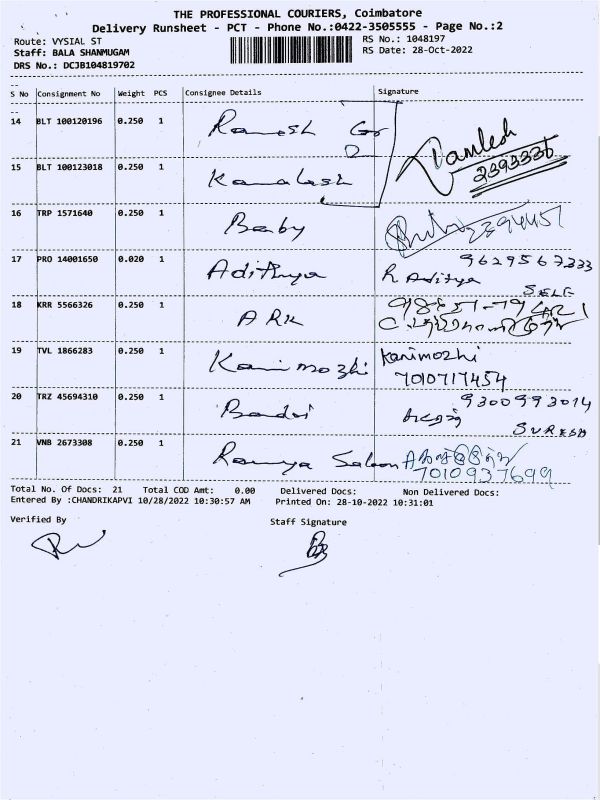 THE PROFESSIONAL COURIERS, Coimbatore
Delivery Runsheet - PCT - Phone No.:0422-3505555 - Page No.:2
Route: VYSIAL ST
RS No.: 1048197
Staff: BALA SHANMUGAM
RS Date: 28-Oct-2022
DRS No.: DCJB104819702
S No Consignment No Weight PCS Consignee Details Signature
14 BLT 100120196 0.250 1 Ramesh
15 BLT 100123018 0.250 1 Kamalash Kamlesh
2393336
16 TRP 1571640 0.250 1 Baby
17 PRO 14001650 0.020 1 Adithya 9629567333
R. Aditya
SELF
18 KRR 5566326 0.250 1 ARK
19 TVL 1866283 0.250 1 Kanimozhi Kanimozhi
7010717454
20 TRZ 45694310 0.250 1 Badri 9300993014
SURESH
21 VNB 2673308 0.250 1 Ramya Saloon
7010937699
Total No. Of Docs: 21 Total COD Amt: 0.00 Delivered Docs: Non Delivered Docs:
Entered By :CHANDRIKAPVI 10/28/2022 10:30:57 AM Printed On: 28-10-2022 10:31:01
Verified By Staff Signature